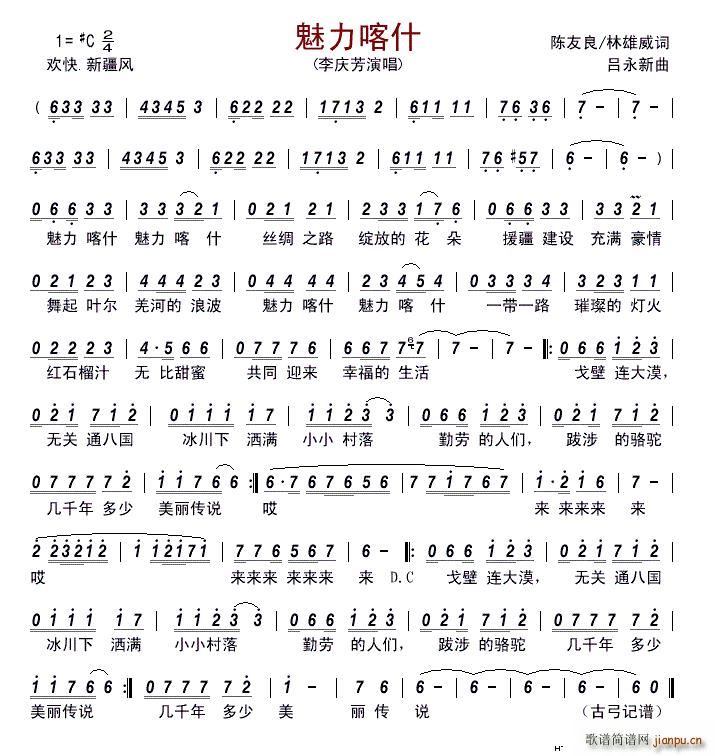 魅力喀什
1=♯C 2/4
陈友良/林雄威词
欢快.新疆风
(李庆芳演唱)
吕永新曲
( 6 3 3 3 3 | 4 3 4 5 3 | 6 2 2 2 2 | 1 7 1 3 2 | 6 1 1 1 1 | 7 6 3 6 | 7 - | 7 - |
6 3 3 3 3 | 4 3 4 5 3 | 6 2 2 2 2 | 1 7 1 3 2 | 6 1 1 1 1 | 7 6 ♯5 7 | 6 - | 6 - )
0 6 6 3 3 | 3 3 3 2 1 | 0 2 1 2 1 | 2 3 3 1 7 6 | 0 6 6 3 3 | 3 3 2 2 1 |
魅力 喀什 魅力 喀 什 丝绸 之路 绽放的 花 朵 援疆 建设 充满 豪情
0 2 1 2 3 | 4 4 4 2 3 | 0 4 4 4 4 | 2 3 3 4 5 4 | 0 3 3 3 4 | 3 3 3 2 1 |
舞起 叶尔 羌河的 浪波 魅力 喀什 魅力 喀 什 一带一路 璀璨的 灯火
0 2 2 2 3 | 4·5 6 6 | 0 6 7 6 7 | 6 6 7 7 6 7 | 7 - | 7 - |: 0 6 6 1 2 3 |
红石榴汁 无 比甜蜜 共同 迎来 幸福的 生活 戈壁 连大漠,
0 2 1 7 1 2 | 0 1 1 1 1 | 1 1 2 3 3 | 0 6 6 1 2 3 | 0 2 2 1 2 |
无关 通八国 冰川下 洒满 小小 村落 勤劳 的人们, 跋涉 的骆驼
0 7 7 7 7 2 | 1 1 7 6 6 :| 6·7 6 7 6 5 6 | 7 7 1 7 6 7 | 1·2 1 6 | 1 - |
几千年 多少 美丽传说 哎 来 来来来 来
2 2 3 2 1 2 | 1 1 2 1 7 1 | 7 7 6 5 6 7 | 6 - :|: 0 6 6 1 2 3 | 0 2 1 7 1 2 |
哎 来来来 来来来 来 D.C 戈壁 连大漠, 无关 通八国
0 1 1 1 1 7 | 1 1 2 3 3 | 0 6 6 1 2 3 | 0 2 2 1 7 1 | 0 7 7 7 7 2 |
冰川下 洒满 小小村落 勤劳 的人们, 跋涉 的骆驼 几千年 多少
1 1 7 6 6 :| 0 7 7 7 7 2 | 1 - | 1 7 | 6 - | 6 - | 6 0 ‖
美丽传说 几千年 多少 美 丽 传 说 (古弓记谱)
歌谱简谱网
jianpu.cn